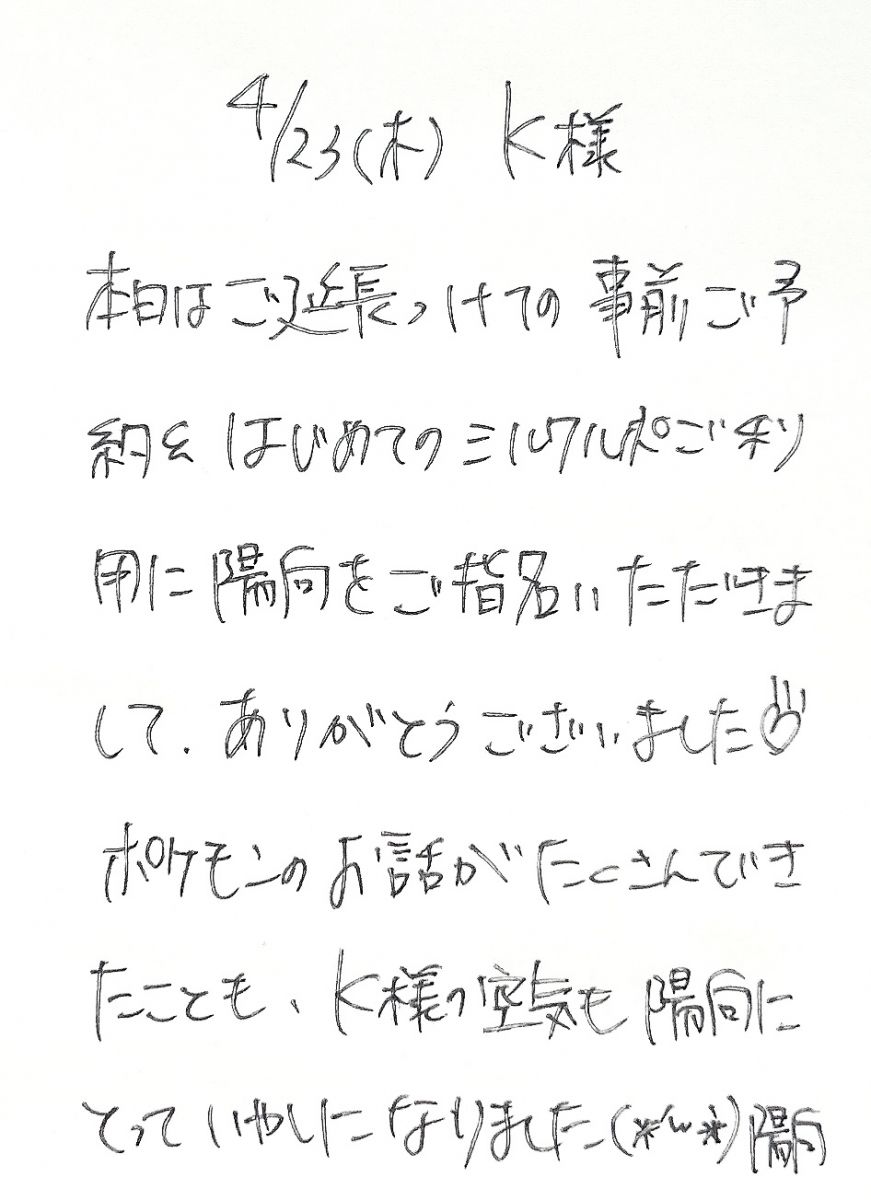 4/23(木) K様
本日はご延長つけての事前ご予
約を はじめてのミルクルポご利
用に陽向をご指名いただきま
して、ありがとうございました
ポケモンのお話がたくさんでき
たことも、K様の空気も陽向に
とっていやしになりました(*'ω'*)陽向